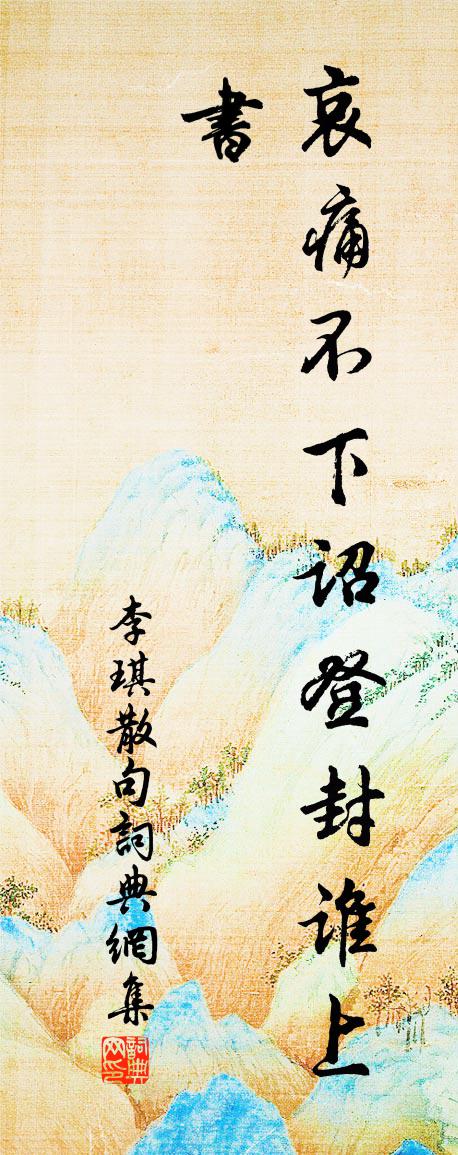 哀痛不下詔登封誰上
書
李琪散句詞典網集
詞典
网印